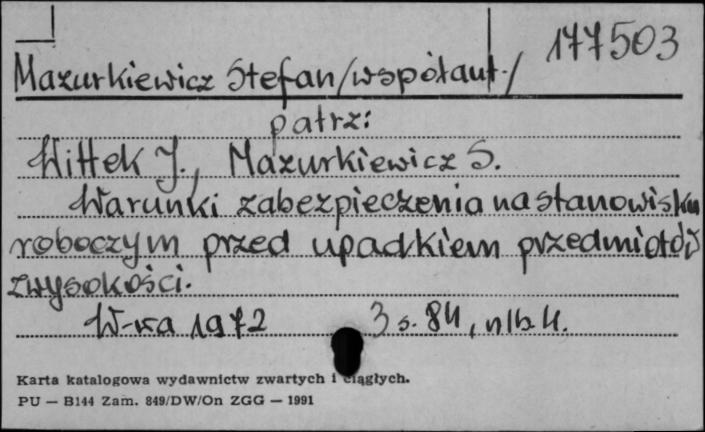 177503
Mazurkiewicz Stefan /współaut./
patrz:
Wittek J., Mazurkiewicz S.
Warunki zabezpieczenia na stanowisku
roboczym przed upadkiem przedmiotów
z wysokości.
W-wa 1972 3 s. 84, nlb. 4.
Karta katalogowa wydawnictw zwartych i ciągłych.
PU — B144 Zam. 849/DW/On ZGG — 1991